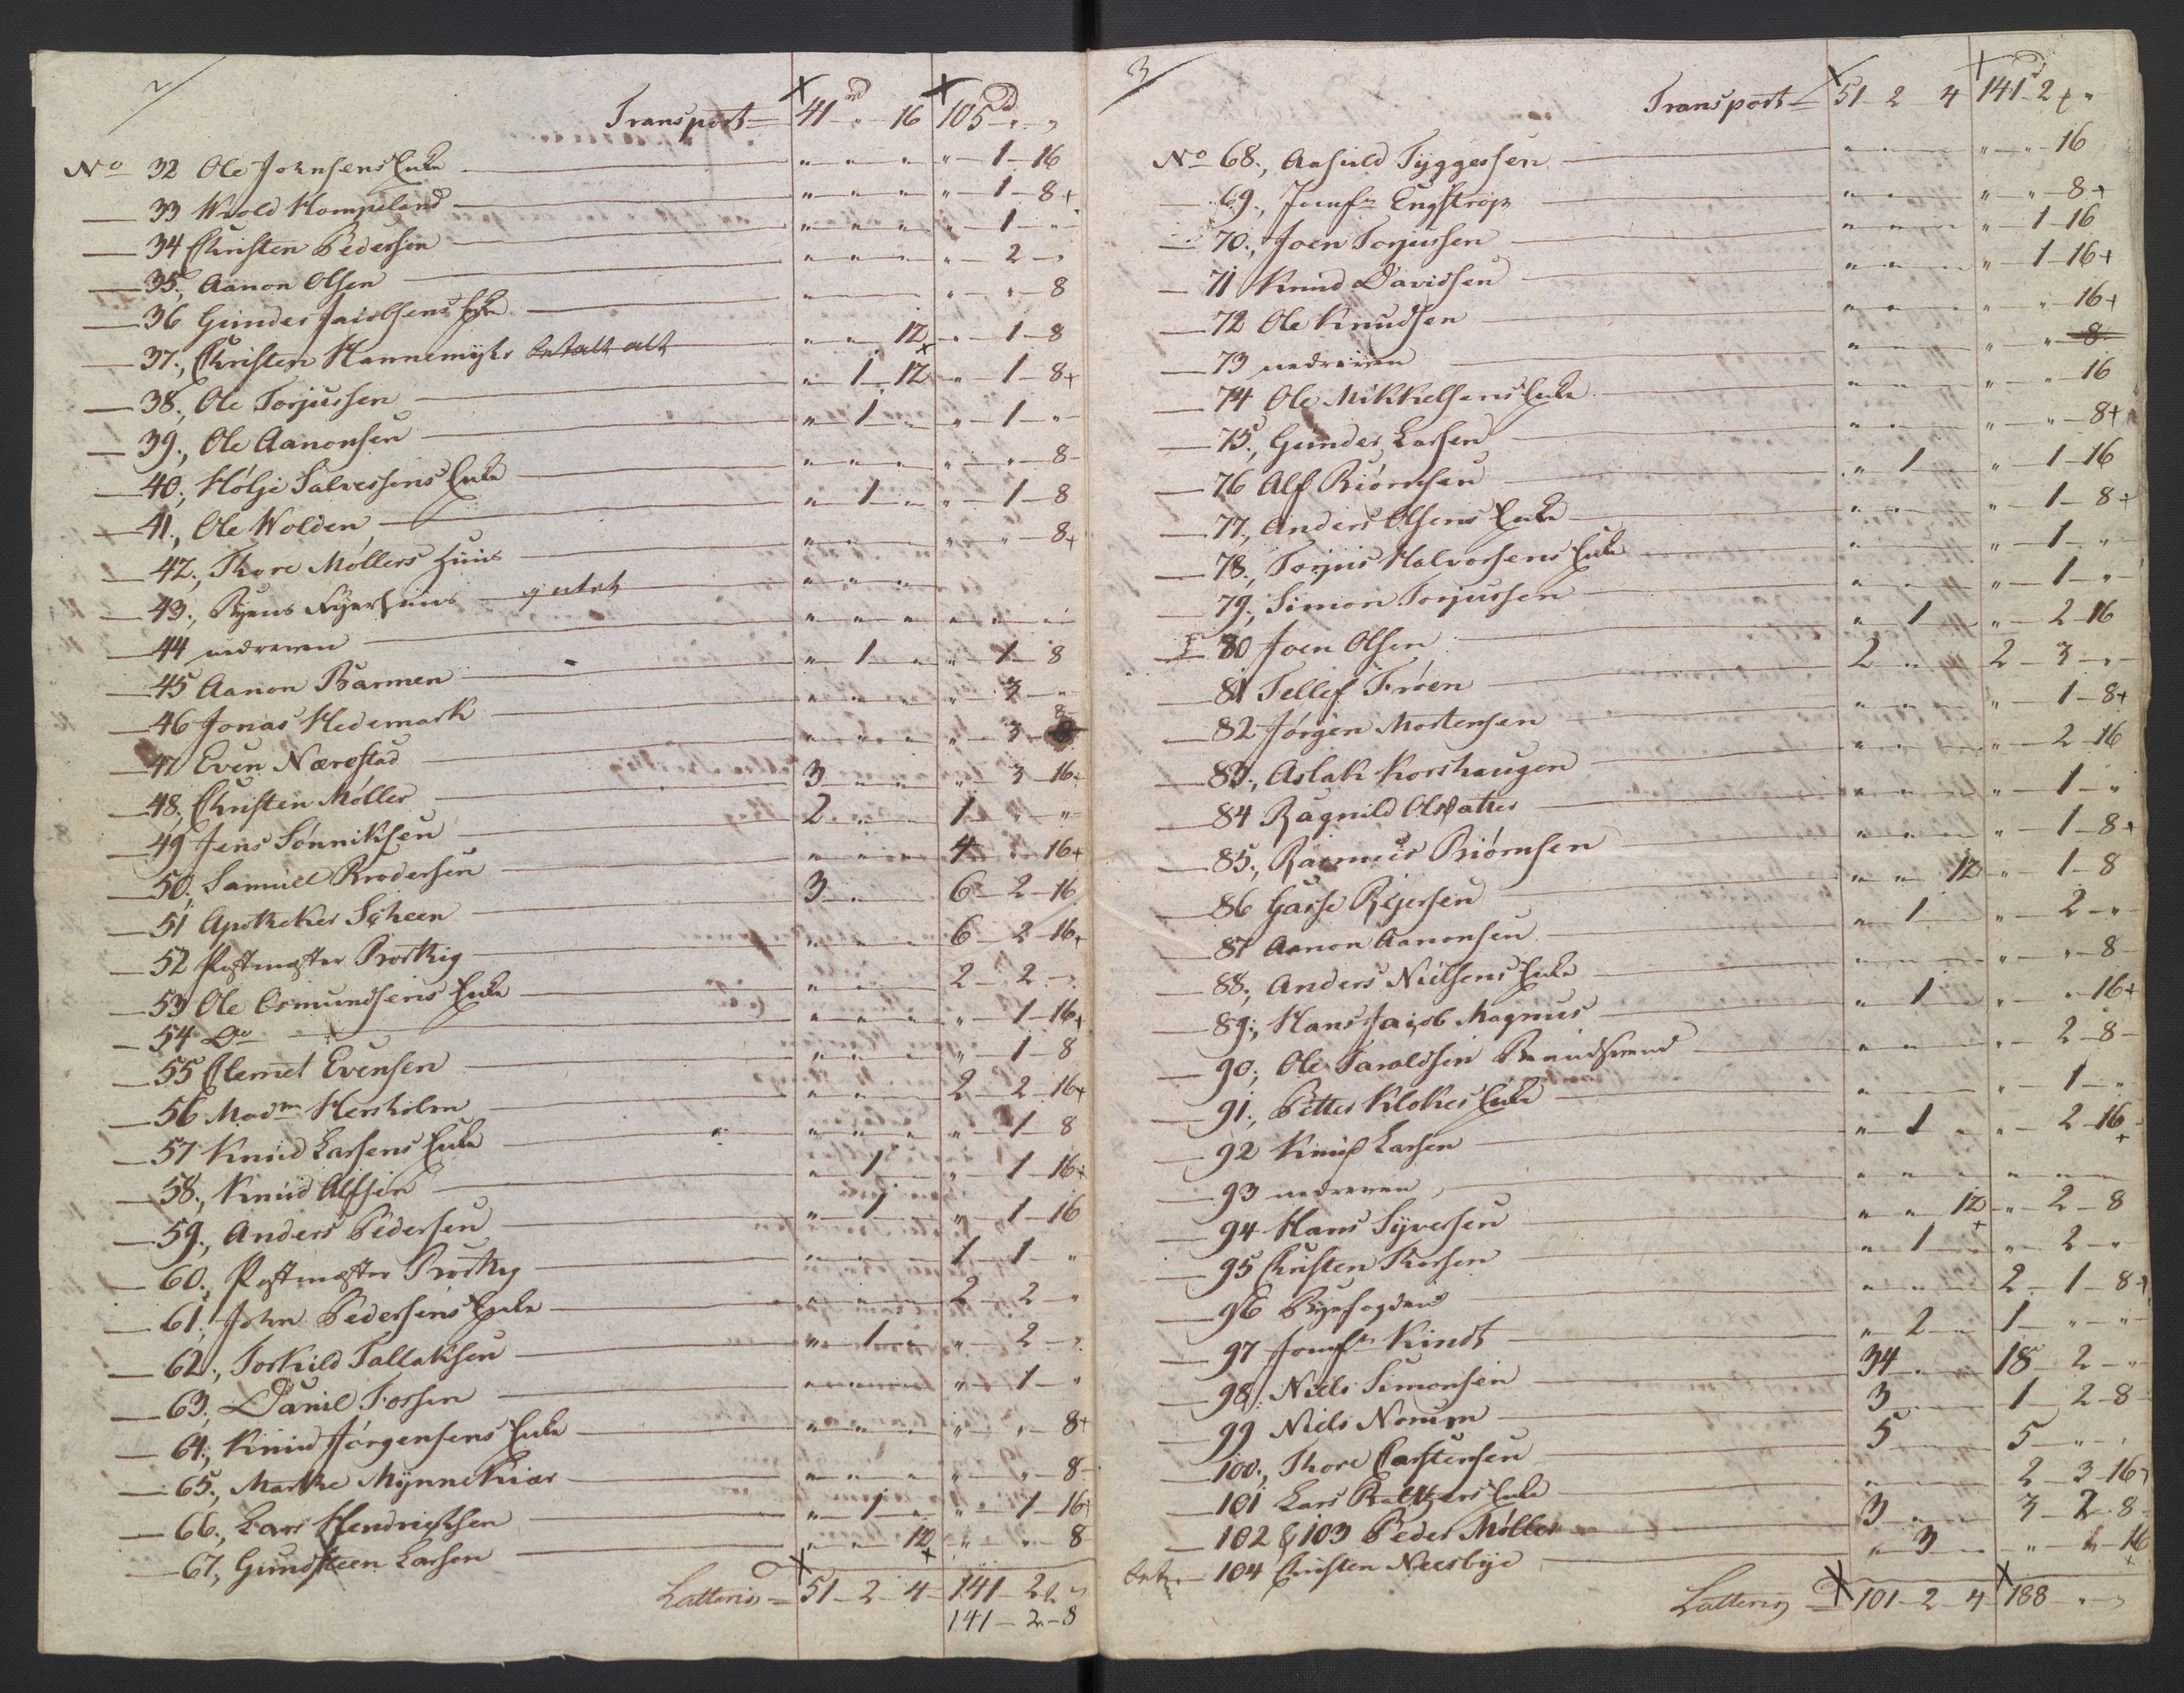 2
Transport = 41 rd " 16 105 rd " "
No 32 Ole Johnsens Enke " " " " 1 16
33 Wrold Hompeland " " " " 1 8 +
34 Christen Pedersen " " " " 1 "
35, Aanon Olsen " " " " 2 "
36 Gunder Jacobsens Enke " " " 8
37, Christen Hannemyhr betalt alt " " 12 + " 1 8
38, Ole Torjussen " 1 12 " 1 8 +
39, Ole Aanonsen " 1 " " 1 "
40, Hølje Salvesens Enke " " " " " 8
41, Ole Wolden " 1 " " 1 8
42, Thore Møllers Huus " " " " " 8 +
43, Byens " " "
44 nedreven " " " " " "
45 Aanon Barmen " 1 " " 1 8
46 Jonas Hedemark " " " " 3 "
47 Even Nærestad " " " " 3 8
48, Christen Møller 3 " " " 3 16
49 Jens Sønniksen 2 " " 1 " "
50, Samuel Brodersen " " " 4 " 16 +
51 Apotheker Scheen 3 " 6 2 16
52 Postmester Brothig " " " 6 2 16 +
53 Ole Osmundsens Enke " " 2 2 "
54 Do " " " " 1 16 +
55 Clemet Evensen " " " " 1 8
56 Madm Hersholm " " 2 2 16 +
57 Knud Larsens Enke " " " " 1 8
58, Knud Alfsen " 1 " 1 16 +
59, Anders Pedersen " 1 " 1 16
60, Postmester Brothig " " 1 1 "
61, John Pedersens Enke " " " 2 2 "
62, Torkild Tallaksen " 1 " " 2 "
63, Daniel Fossen " 1 "
64, Knud Jørgensens Enke " " " " " 8 +
65, Marthe Mynnekiær " " " " " 8
66, Lars Hendrichsen " 1 " " 1 16 +
67, Gundsteen Larsen " " 12 + " " 8
Latteris = 51 2 4 141 2 "
141 - 2 - 8
3
Transport = 51 2 4 141 rd 2 "
No 68, Aasuld Tyggessen " " " " 16
69, Jomfr Engstrøp " " " " 8 +
70, Joen Torjussen " " " " 1 16
71 Knud Davidsen " " " " 1 16 +
72 Ole Knudsen " " " " 16 +
73 nedreven " " " 8
74 Ole Mikkelsens Enke " " " " 16
75, Gunder Larsen " " " " 8 +
76 Alf Biørnsen " 1 " 1 16
77, Anders Olsens Enke " " " 1 8 +
78, Torjus Halvorsens Enke " " 1 "
79, Simon Torjussen " " " 1 "
80 Joen Olsen " 1 " " 2 16
81 Tellef Froen 2 " " 2 3 "
82 Jørgen Mortensen " " " " 1 8 +
83, Aslak Korshaugen " " " " 2 16
84 Ragnild Olsdatter " " " " 1 "
85, Rasmus Biørnsen " " " " 1 8 +
86 Gasse Rejersen " " 12 " 1 8
87 Aanon Aanonsen " 1 " 2 "
88, Anders Nielsens Enke " " " " " 8
89, Hans Jacob Magnus " 1 " " 16 +
90, Ole Taraldsen " " " 2 8
91, Petter Klokers Enke " " 1 "
92 Knud Larsen " 1 " " 2 16 +
93 nedreven " " " " " "
94 Hans Syversen " " 12 + " 2 8
95 Christen Thorsen " 1 " " 2 "
96 Byefogden " " " 2 1 8 +
97 Jomfr Kindt " 2 " 1 " "
98, Niels Simonsen 34 " 18 2 "
99 Niels Norum 3 1 2 8
100, Thore Carstensen 5 5 " "
101 Lars Baltzers Enke " 2 3 16 +
102 & 103 Peder Møller 3 " 3 2 8
104 Christen Neersbye " 3 " " 16 +
Latteris = 101 2 4 188 " "